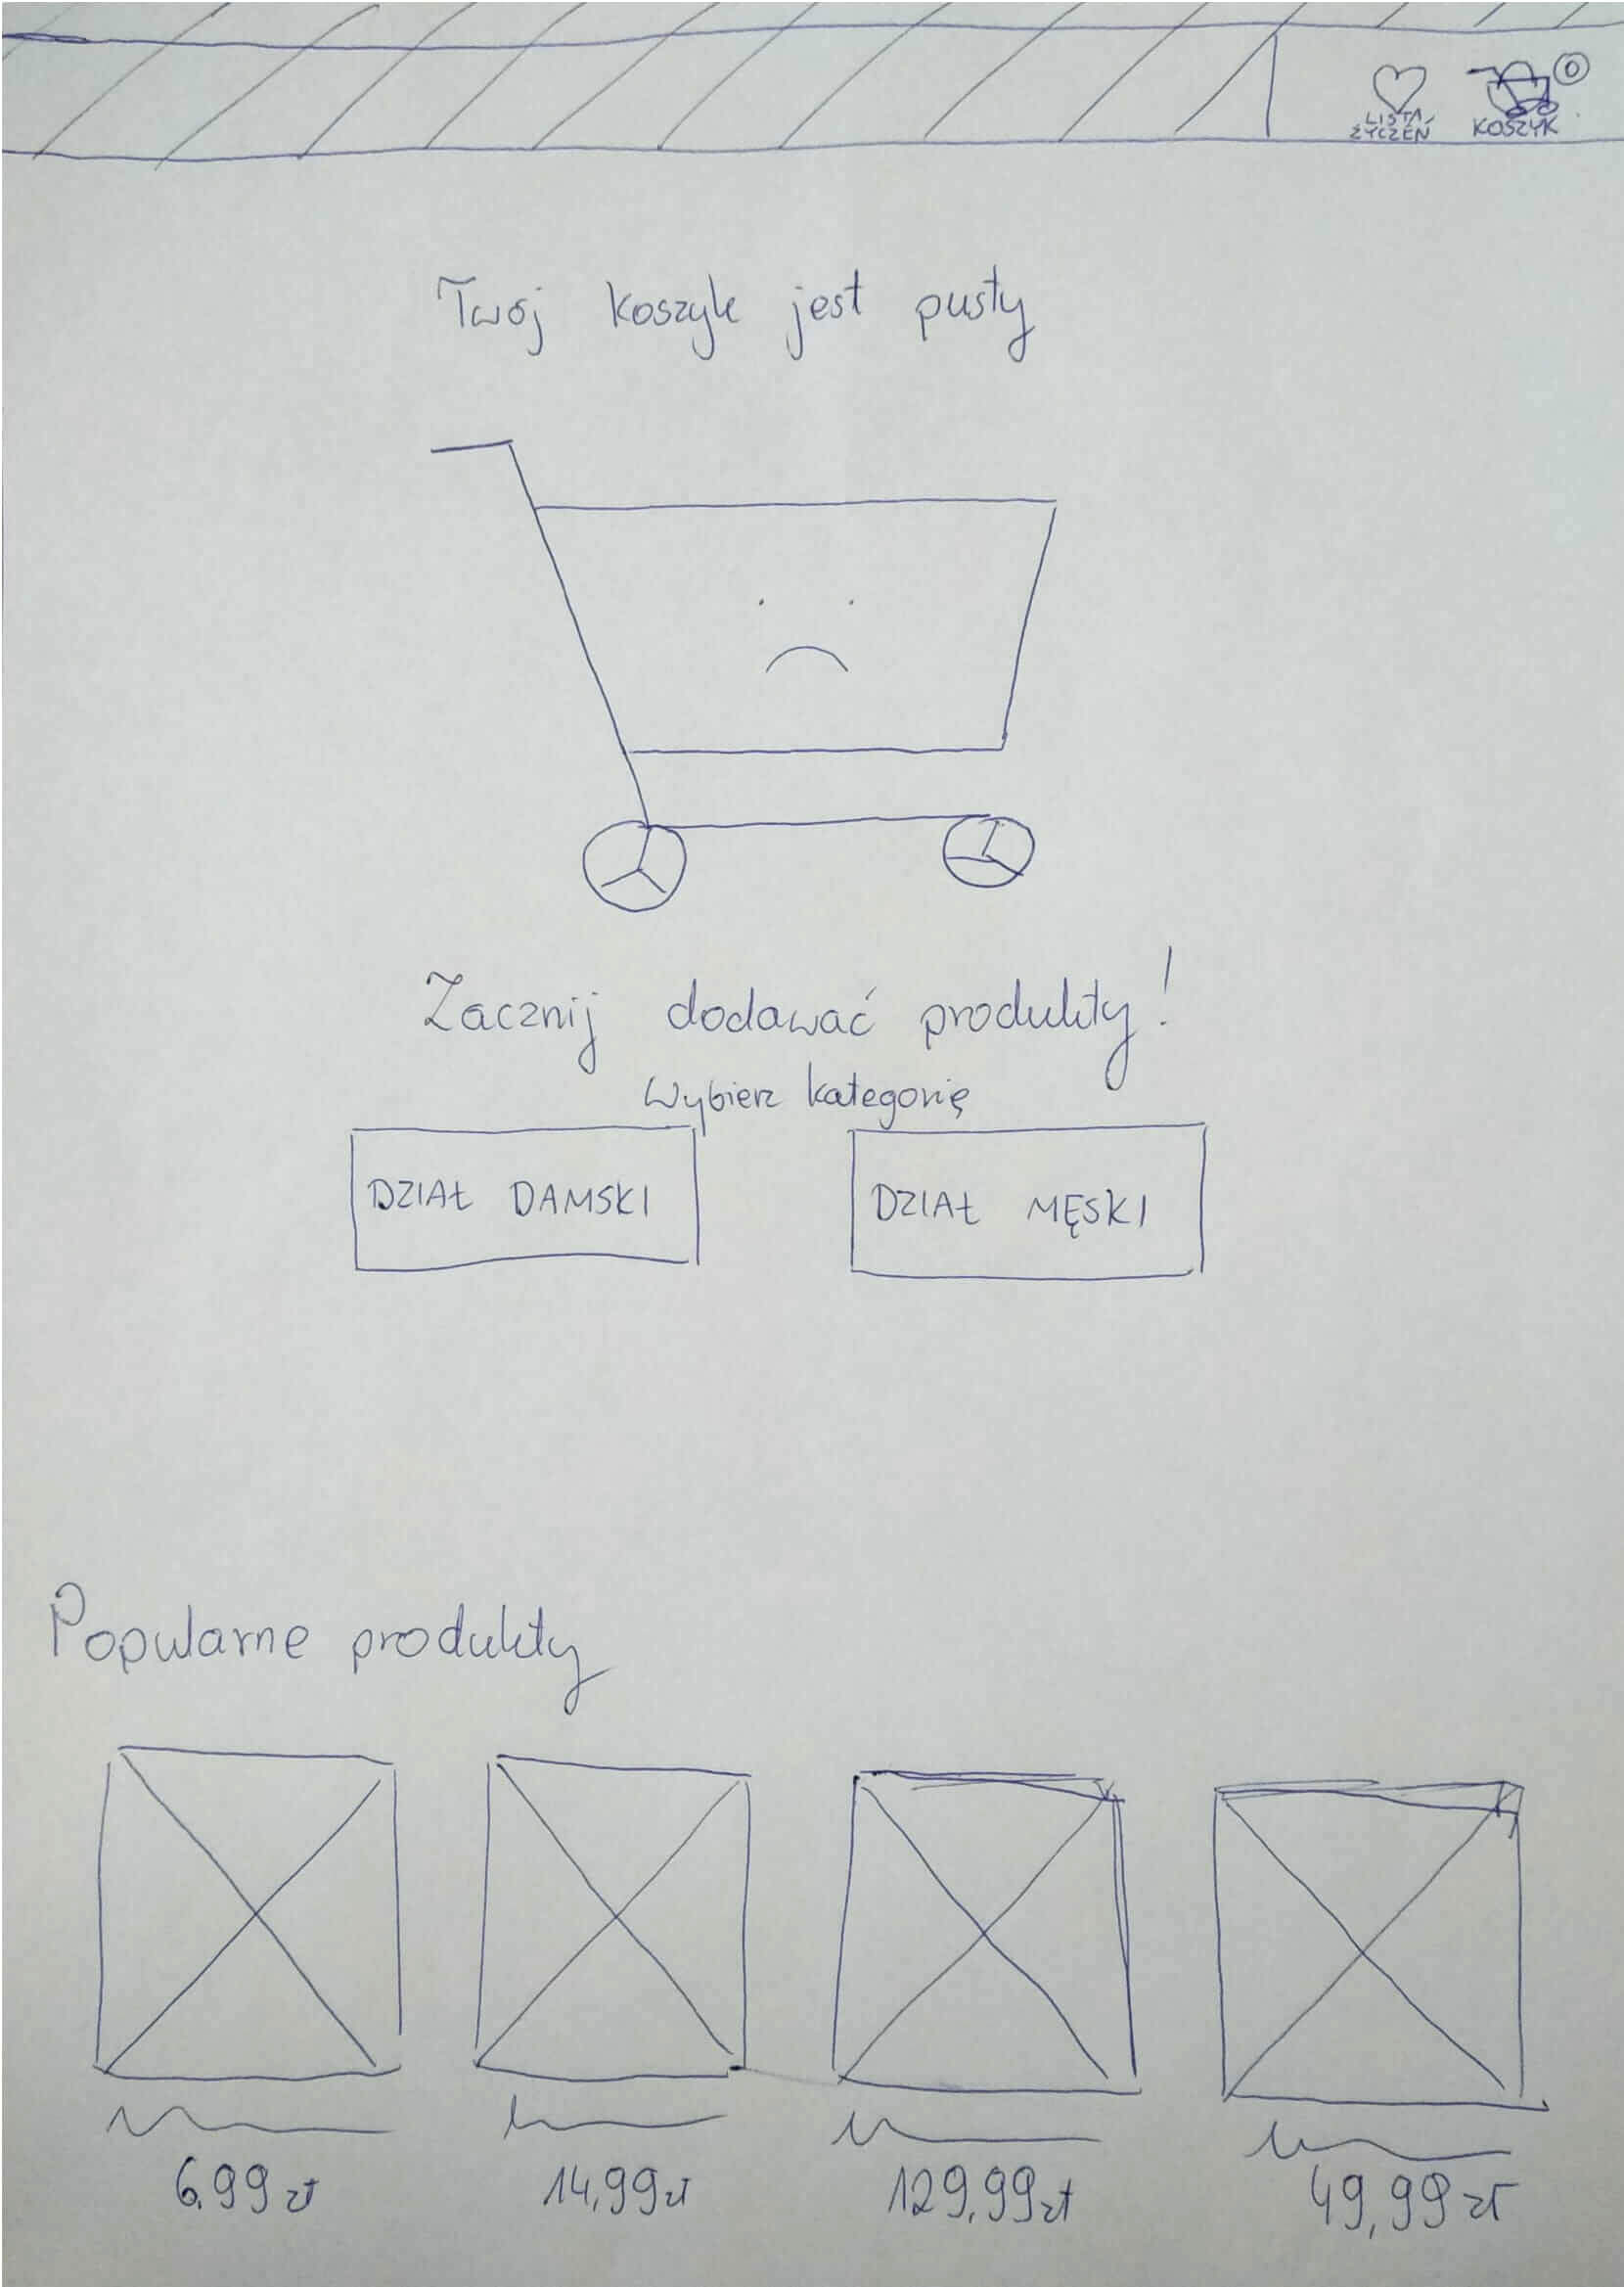 LISTA
ŻYCZEŃ
KOSZYK
0
Twój koszyk jest pusty
Zacznij dodawać produkty!
Wybierz kategorię
DZIAŁ DAMSKI
DZIAŁ MĘSKI
Popularne produkty
6,99 zł
14,99 zł
129,99 zł
49,99 zł